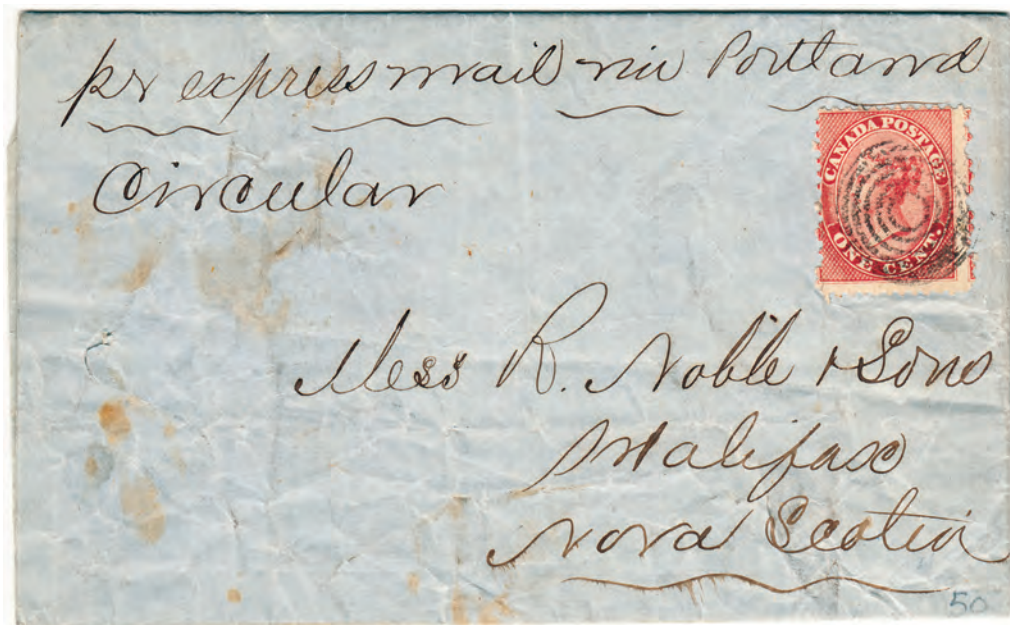 pr express mail via Portland
Circular
CANADA POSTAGE
ONE CENT.
Mess R. Noble & Sons
Halifax
Nova Scotia
50